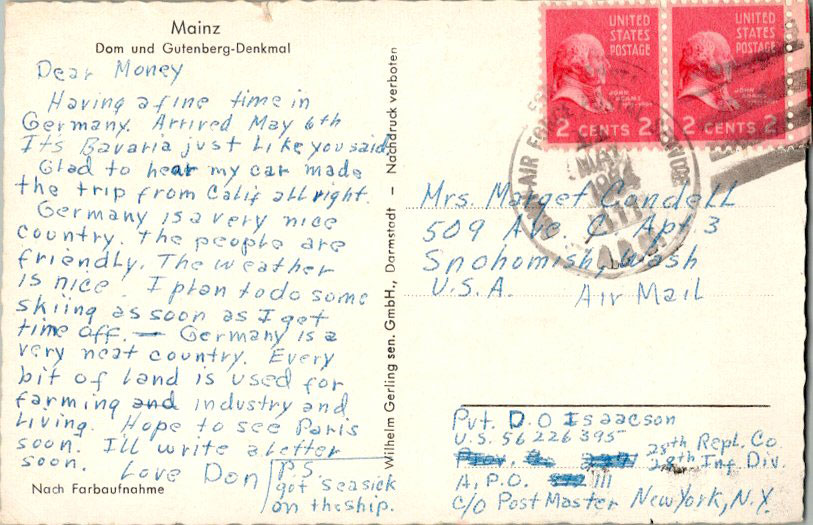 Mainz
Dom und Gutenberg-Denkmal
Dear Money
Having a fine time in
Germany. Arrived May 6th
Its Bavaria just like you said
Glad to hear my car made
the trip from Calif allright.
Germany is a very nice
country. The people are
friendly. The weather
is nice. I plan to do some
skiing as soon as I get
time off. — Germany is a
very neat country. Every
bit of land is used for
farming and industry and
living. Hope to see Paris
soon. I'll write a letter
soon.
Love Don
P.S.
got seasick
on the ship.
Nach Farbaufnahme
Wilhelm Gerling sen. GmbH., Darmstadt — Nachdruck verboten
UNITED
STATES
POSTAGE
JOHN
ADAMS
2 CENTS 2
UNITED
STATES
POSTAGE
JOHN
ADAMS
2 CENTS 2
AIR FORCE
MAY
1954
Mrs. Marget Condell
509 Ave C Apt 3
Snohomish, Wash
U.S.A.
Air Mail
Pvt. D.O Isaacson
U.S. 56226395
28th Repl. Co.
28th Inf. Div.
A.P.O. 111
C/o Post Master New York, N.Y.